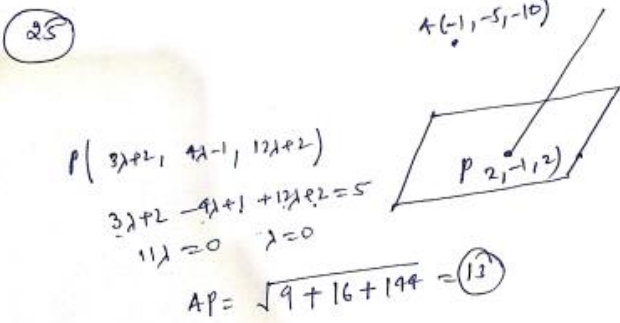 25
A(-1, -5, -10)
P(3λ+2, 4λ-1, 12λ+2)
P 2,-1,2)
3λ+2 -4λ+1 +12λ+2=5
11λ=0 λ=0
AP= √9+16+144 = 13